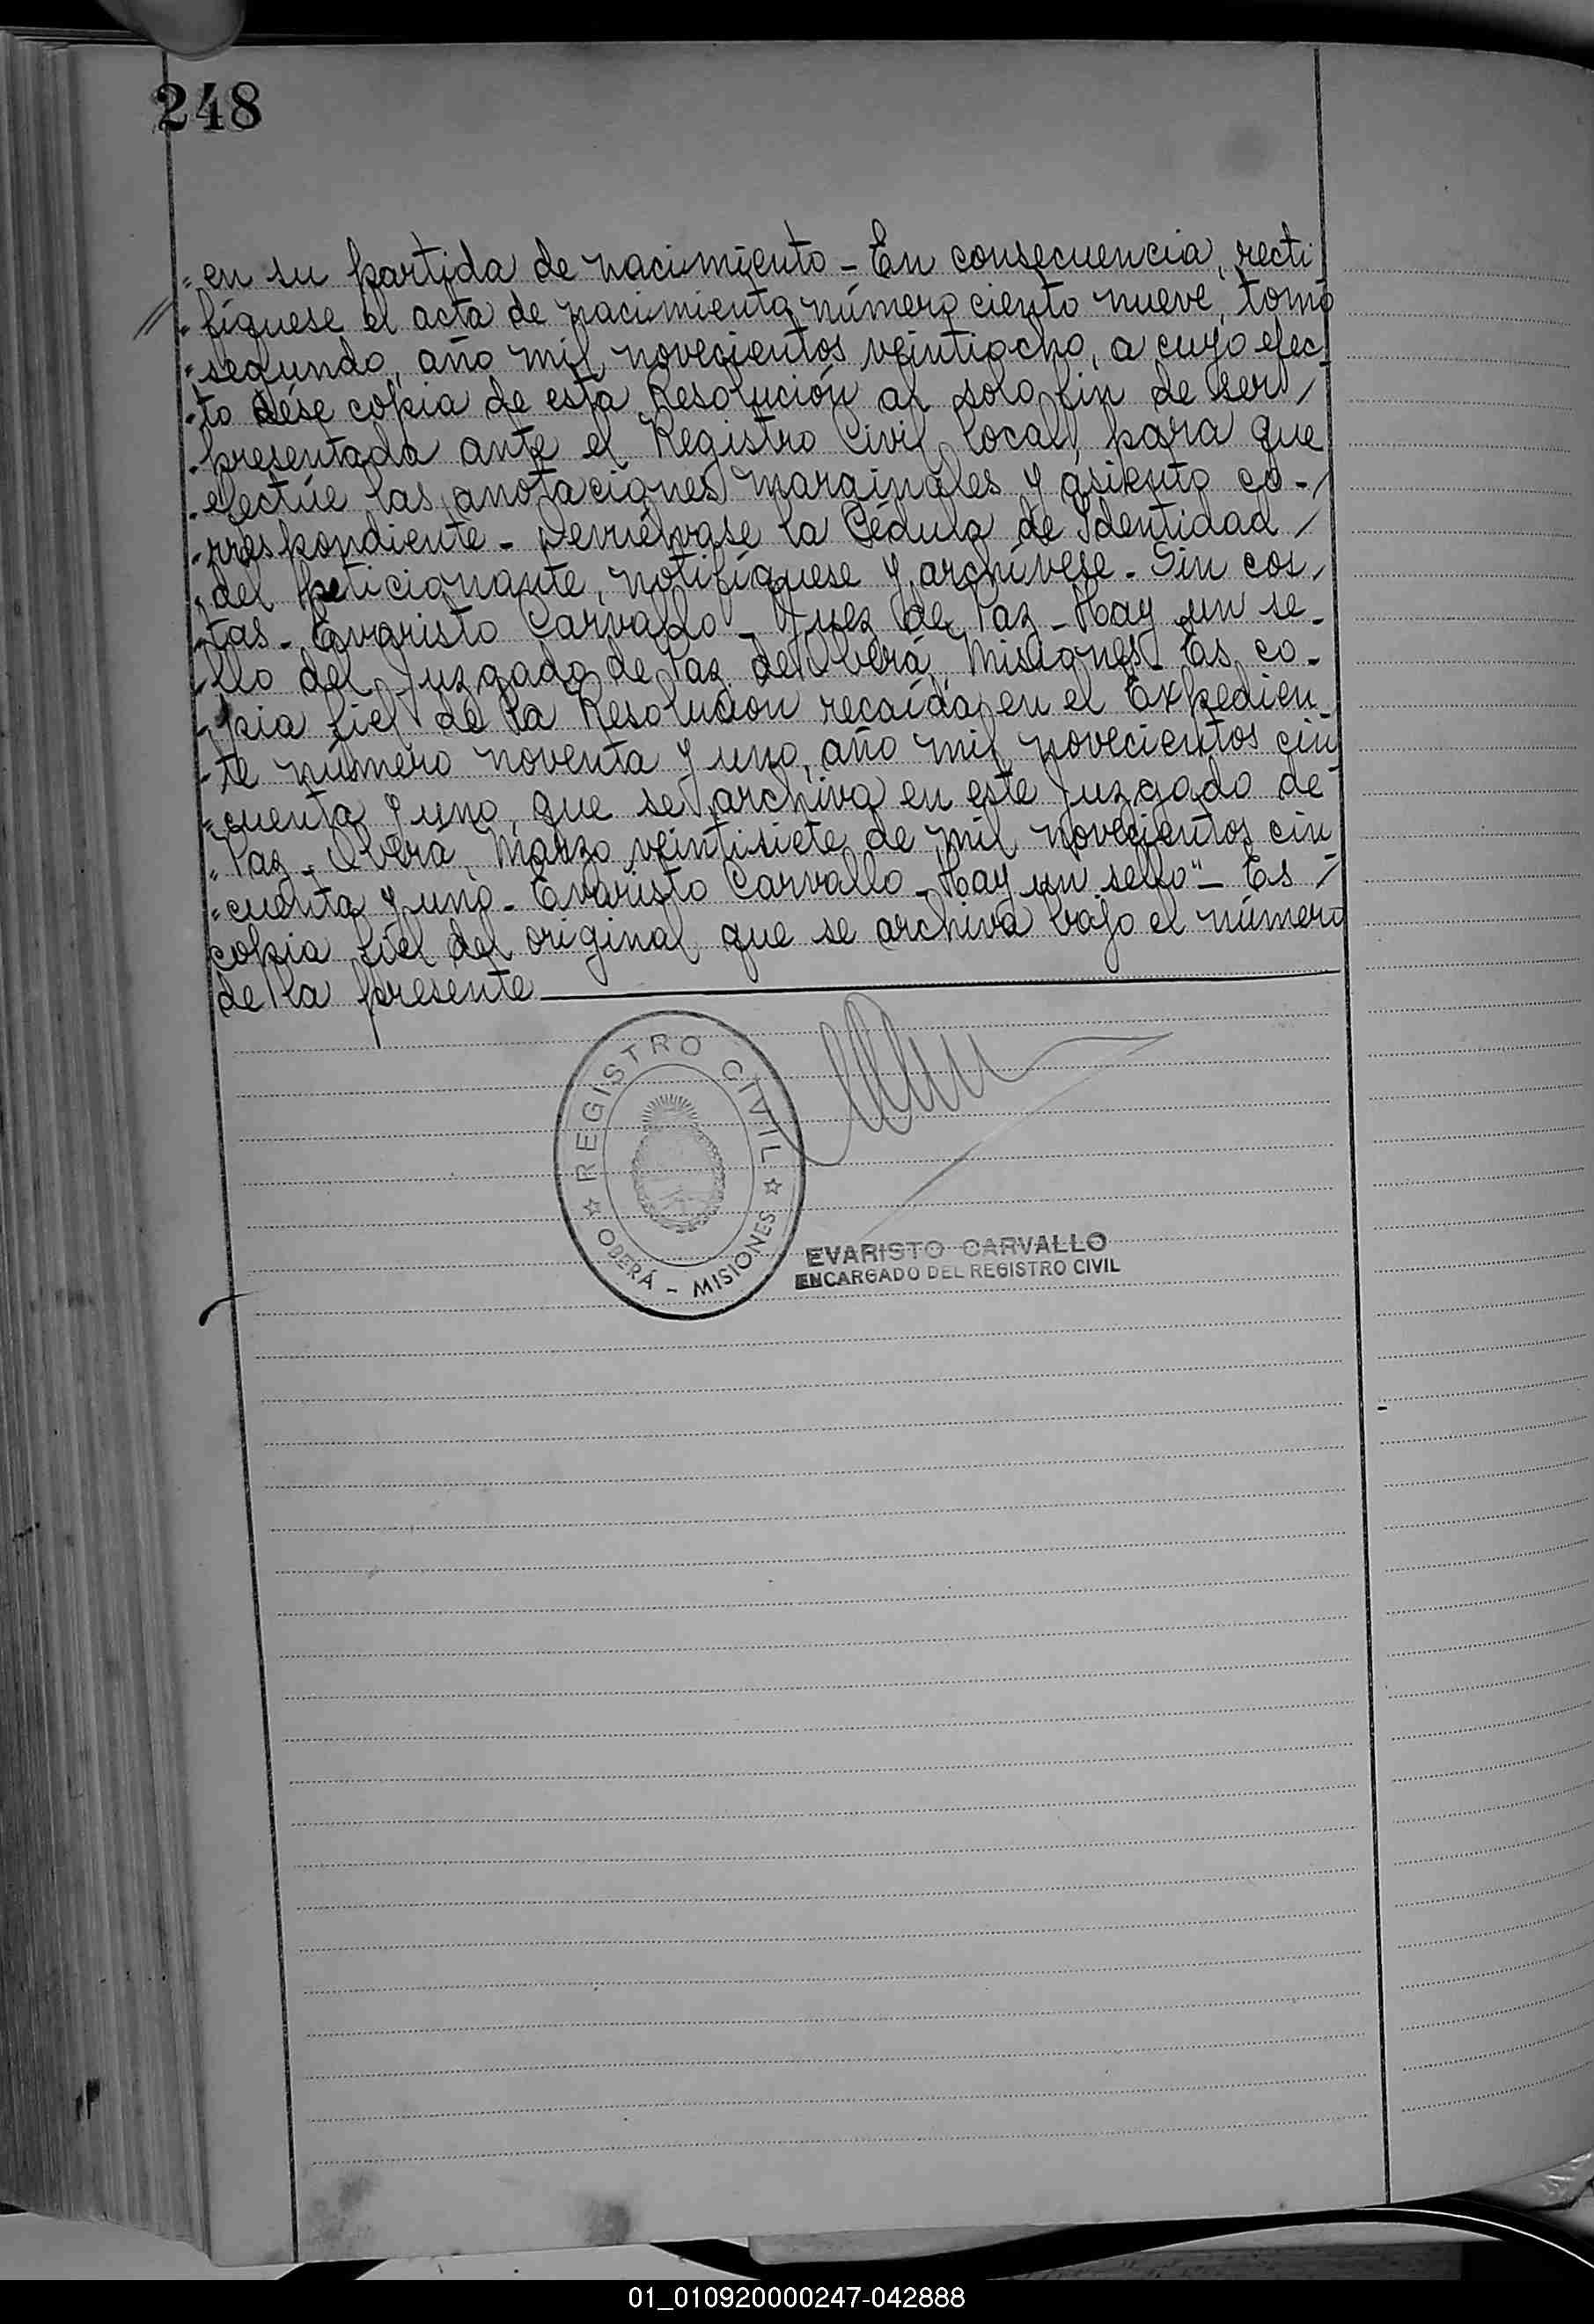 248
" en su partida de nacimiento - En consecuencia, recti
" fíquese el acta de nacimiento número ciento nueve, tomo
" segundo, año mil novecientos veintiocho, a cuyo efec
" to dése copia de esta Resolución al solo fin de ser /
" presentada ante el Registro Civil local, para que
" efectúe las anotaciones marginales y asiento co- /
" rrespondiente - Devuélvase la Cédula de Identidad /
" del peticionante, notifíquese y archívese. Sin cos /
" tas - Evaristo Carvallo - Juez de Paz - Hay un se -
" llo del Juzgado de Paz de Oberá, Misiones - Es co -
" pia fiel de la Resolución recaída en el Expedien
" te número noventa y uno, año mil novecientos cin
" cuenta y uno, que se archiva en este Juzgado de
" Paz - Oberá, Marzo veintisiete de mil novecientos cin
" cuenta y uno - Evaristo Carvallo - Hay un sello" - Es /
copia fiel del original que se archiva bajo el número
de la presente
REGISTRO CIVIL
OBERÁ - MISIONES
EVARISTO CARVALLO
ENCARGADO DEL REGISTRO CIVIL
01_010920000247-042888